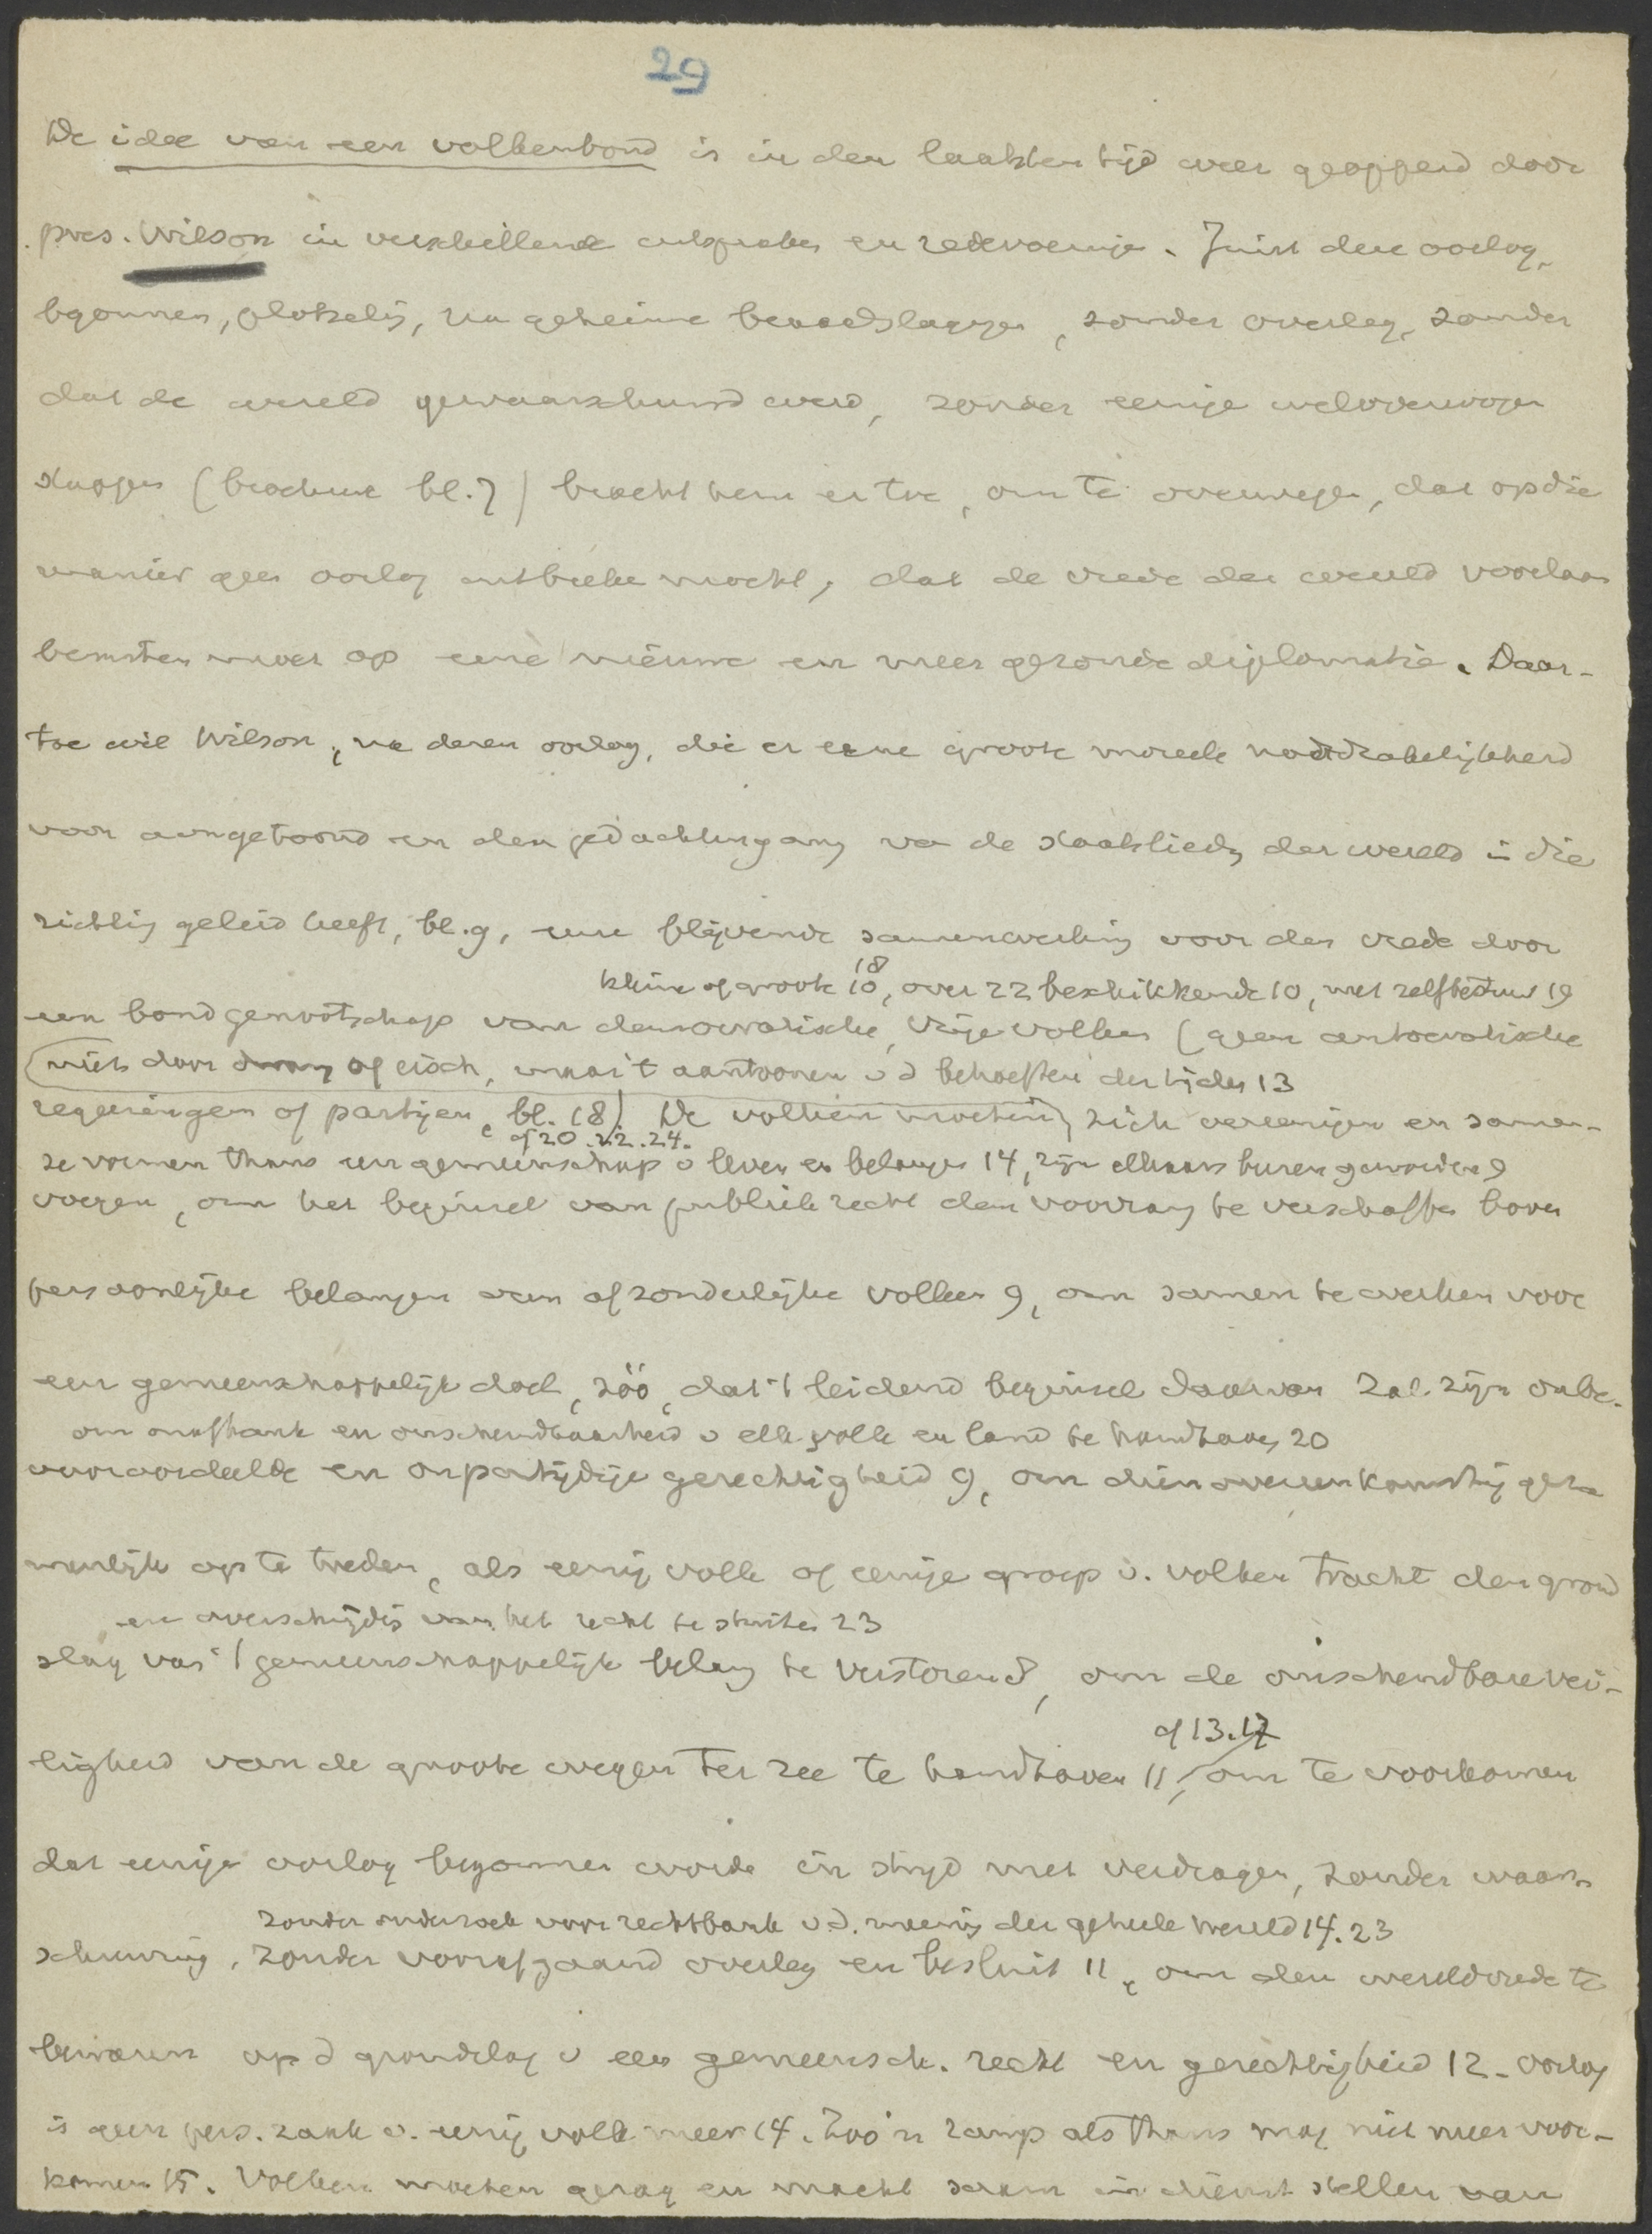 29
De idee van een volkenbond is in den laatsten tijd weer geopperd door
pres. Wilson in verschillende uitspraken en redevoeringen. Juist deze oorlog,
begonnen, plotselijk, na geheime beraadslagingen, zonder overleg, zonder
dat de wereld gewaarschuwd werd, zonder eenige weloverwogen
stappen (brochure bl. 7) bracht hem er toe, om te overwegen, dat op die
manier geen oorlog uitbreken mocht, dat de vrede der wereld voortaan
berusten moet op eene nieuwe en meer gezonde diplomatie. Daar-
toe wil Wilson, na dezen oorlog, die er eene groote moreele noodzakelijkheid
voor aangetoond en den gedachtengang van de staatslieden der wereld in die
richting geleid heeft, bl. 9, eene blijvende samenwerking voor den vrede door
kleine of groote 10, 18, over zz beschikkende 10, met zelfbestuur 19
een bondgenootschap van democratische, vrije volken (geen autocratische
niet door dwang of eisch, maar 't aantoonen v d behoeften der tijden 13
regeeringen of partijen, bl. 18). De volken moeten zich vereenigen en samen-
cf 20. 22. 24.
ze vormen thans een gemeenschap v leven en belangen 14, zijn elkaars buren geworden 9
voegen, om het beginsel van publiek recht den voorrang te verschaffen boven
persoonlijke belangen van afzonderlijke volken 9, om samen te werken voor
een gemeenschappelijk doel, zóó, dat 't leidend beginsel daarvan zal zijn onbe-
om onafhank en onschendbaarheid v elk volk en land te handhaven 20
vooroordeelde en onpartijdige gerechtigheid 9, om dienovereenkomstig geza
menlijk op te treden, als eenig volk of eenige groep v. volken tracht den grond
en overschrijdig van het recht te stuiten 23
slag van 't gemeenschappelijk belang te verstoren 8, om de onschendbare vei-
ligheid van de groote wegen ter zee te handhaven 11, cf 13. 17 om te voorkomen
dat eenige oorlog begonnen worde in strijd met verdragen, zonder waar-
zonder onderzoek voor rechtbank v. d. meening der geheele wereld 14. 23
schuwing, zonder voorafgaand overleg en besluit 11, om den wereldvrede te
bewaren op d grondslag v een gemeensch. recht en gerechtigheid 12. Oorlog
is geen pers. zaak v. eenig volk meer 14. Zoo'n ramp als thans mag niet meer voor-
komen 15. Volken moeten gezag en macht saam in dienst stellen van